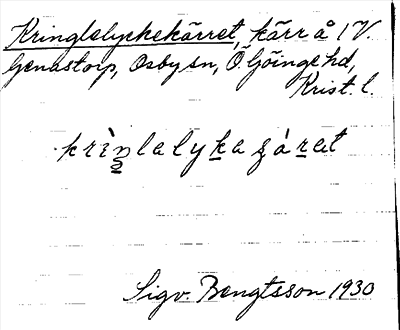 Kringlelyckekärret, kärr å 1 V.
Genastorp, Osby sn, Ö Göinge hd,
Krist. l.
krìn̲lelyk̲aʂár̲et
Sigv. Bengtsson 1930